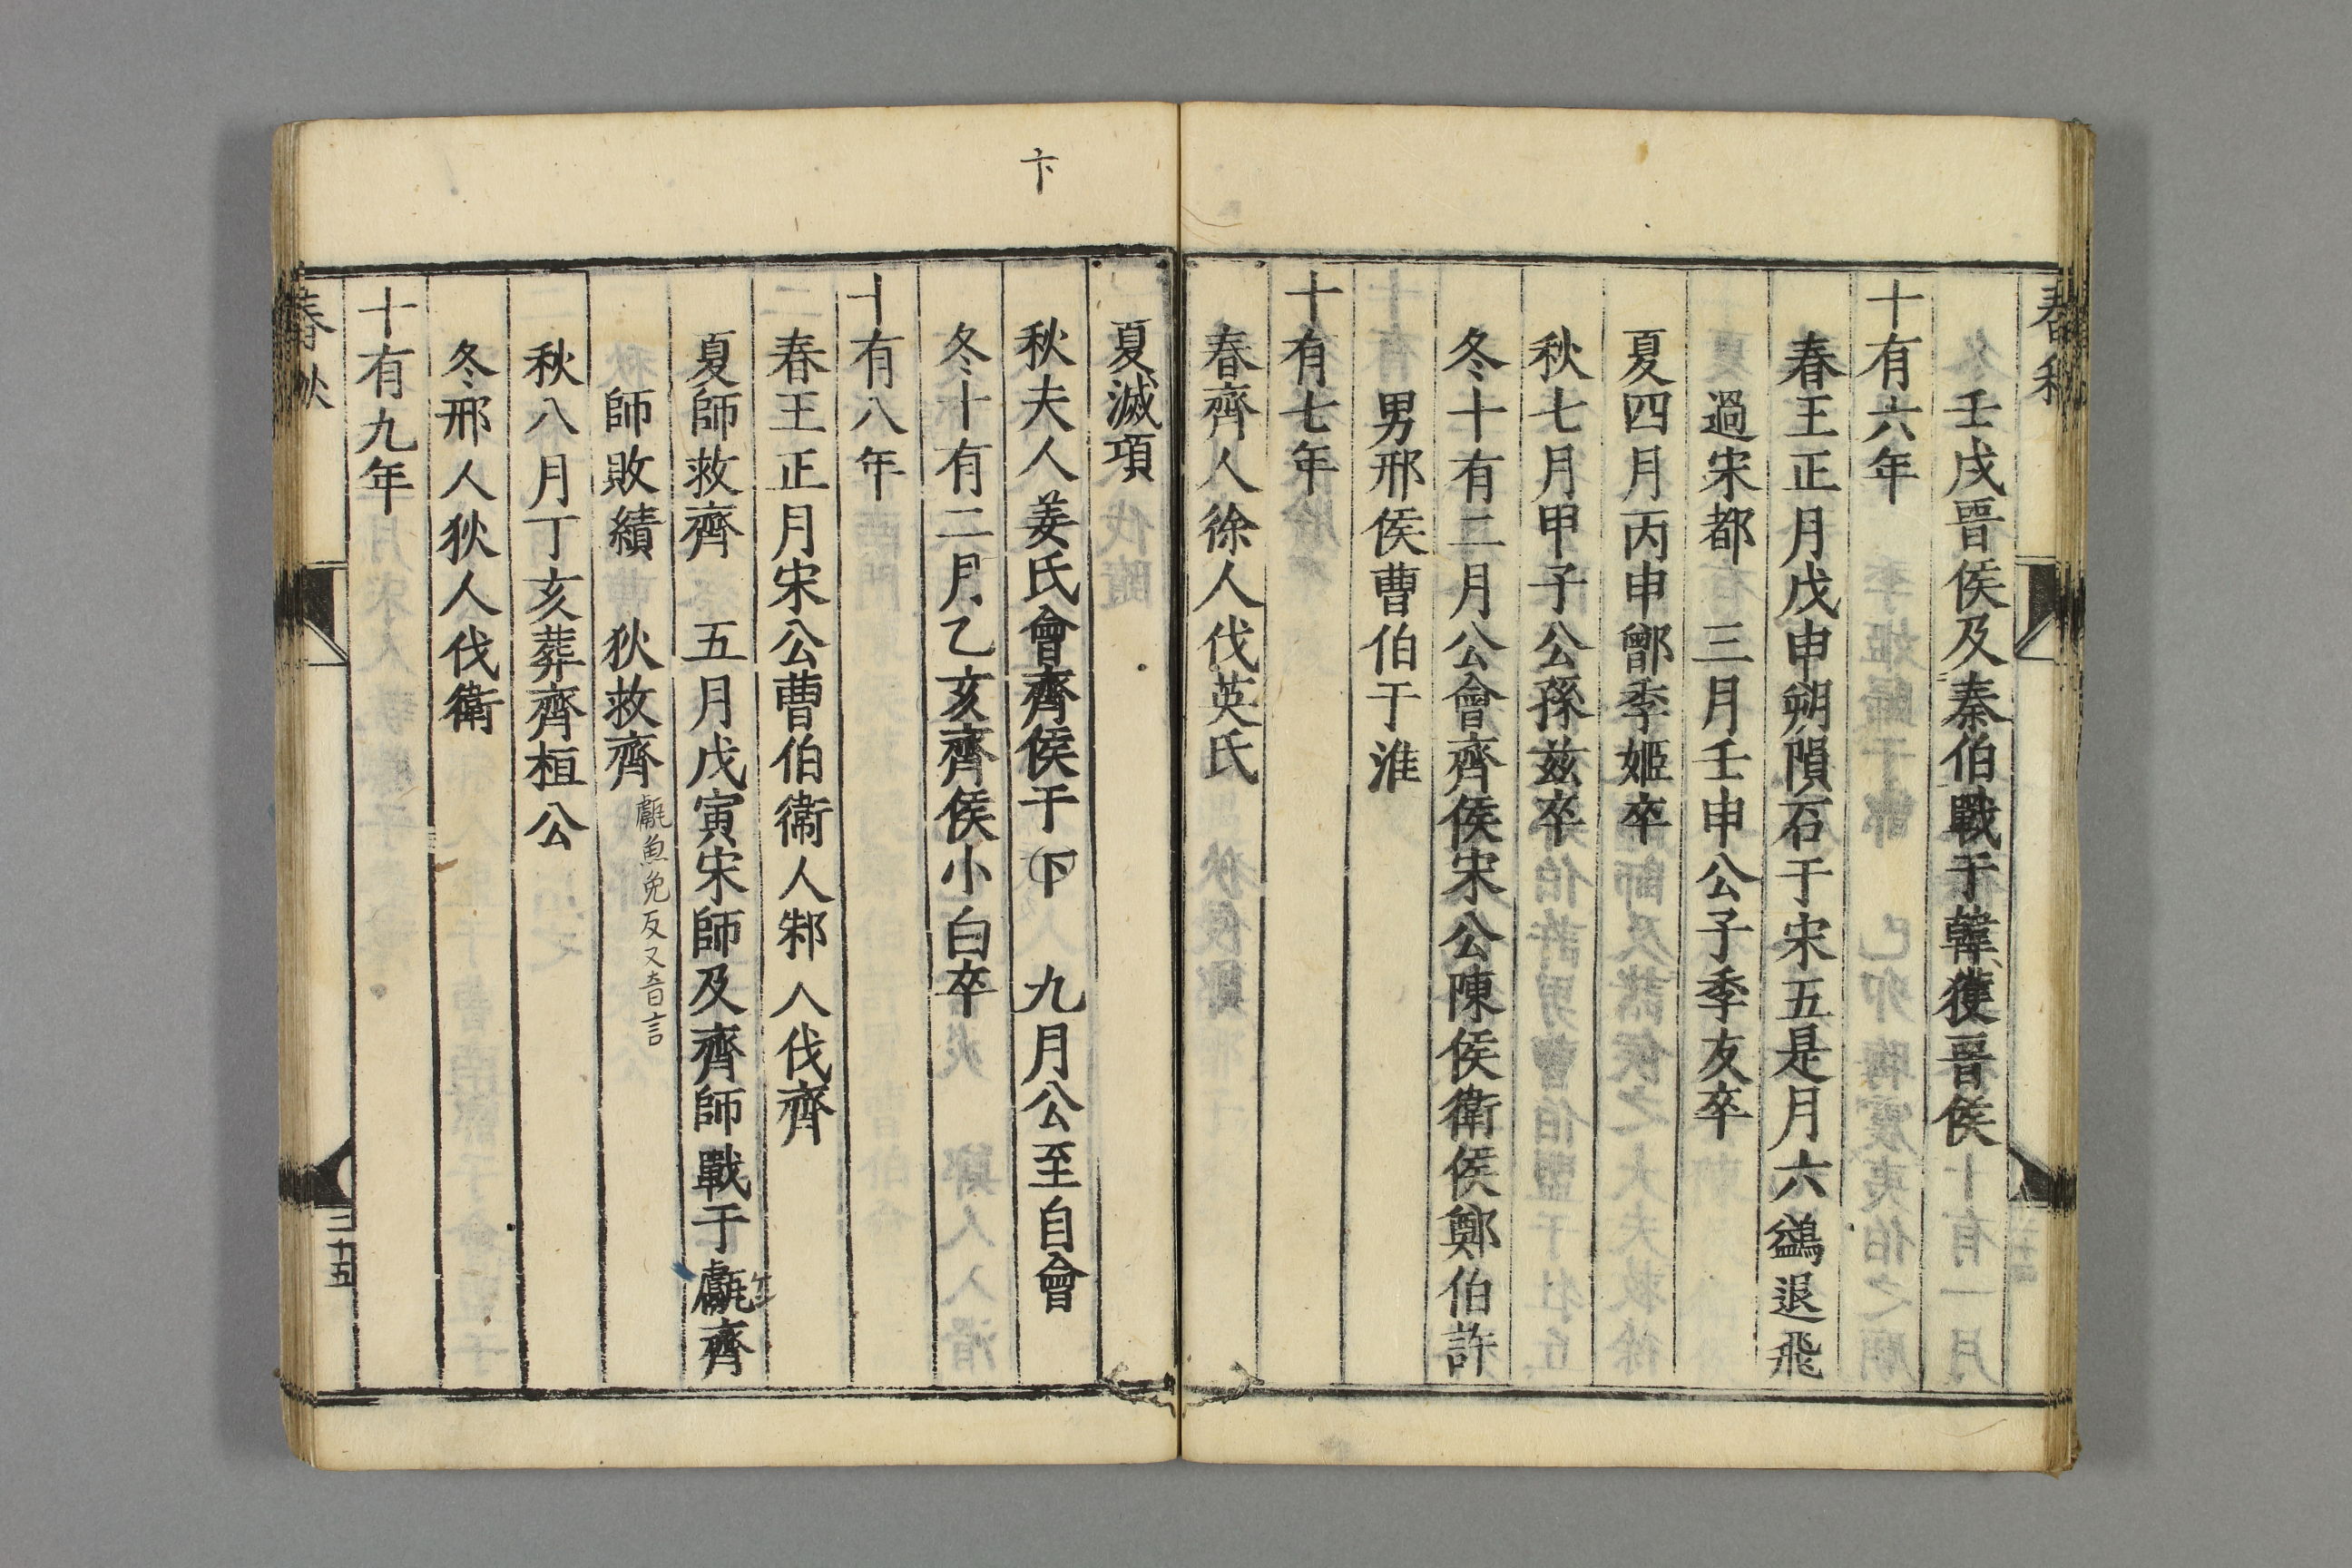 春秋
壬戌晋侯及秦伯戰于韓獲晋侯
十有六年
春王正月戊申朔隕石于宋五是月六鷁退飛
過宋都　三月壬申公子季友卒
夏四月丙申鄫季姬卒
秋七月甲子公孫兹卒
冬十有二月公會齊侯宋公陳侯衛侯鄭伯許
男邢侯曹伯于淮
十有七年
春齊人徐人伐英氏
夏滅項
卞
秋夫人姜氏會齊侯于下　九月公至自會
冬十有二月乙亥齊侯小白卒
十有八年
春王正月宋公曹伯衞人邾人伐齊
夏師救齊　五月戊寅宋師及齊師戰于甗齊
師敗績　狄救齊
甗魚免反又音言
秋八月丁亥葬齊桓公
冬邢人狄人伐衛
十有九年
春秋
三十五